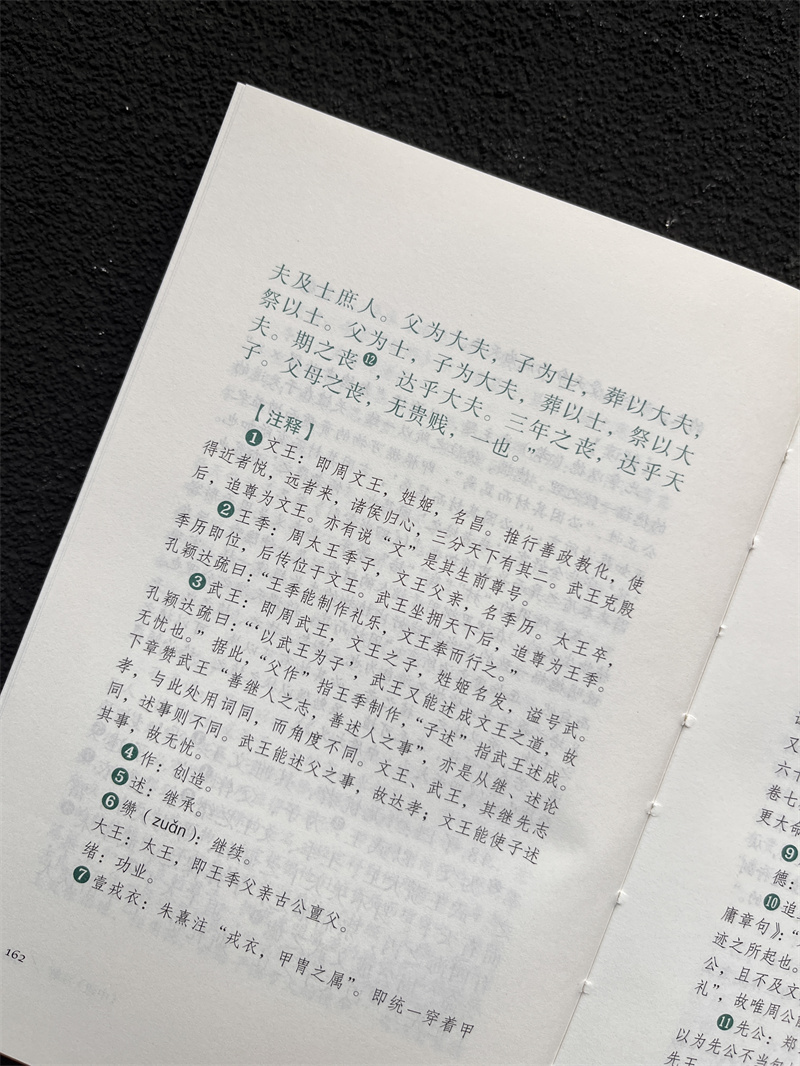 夫及士庶人。父为大夫，子为士，葬以大夫，
祭以士。父为士，子为大夫，葬以士，祭以大
夫。期之丧⑫，达乎大夫。三年之丧，达乎天
子。父母之丧，无贵贱，一也。”
【注释】
❶文王：即周文王，姓姬，名昌。推行善政教化，使
得近者悦，远者来，诸侯归心，三分天下有其二。武王克殷
后，追尊为文王。亦有说“文”是其生前尊号。
❷王季：周太王季子，文王父亲，名季历。太王卒，
季历即位，后传位于文王。武王坐拥天下后，追尊为王季。
孔颖达疏曰：“王季能制作礼乐，文王奉而行之。”
❸武王：即周武王，文王之子，姓姬名发，谥号武。
孔颖达疏曰：“‘以武王为子’，武王又能述成文王之道，故
无忧也。”据此，“父作”指王季制作，“子述”指武王述成。
下章赞武王“善继人之志，善述人之事”，亦是从继、述论
孝，与此处用词同，而角度不同。文王、武王，其继先志
同，述事则不同。武王能述父之事，故达孝；文王能使子述
其事，故无忧。
❹作：创造。
❺述：继承。
❻缵（zuǎn）：继续。
大王：太王，即王季父亲古公亶父。
绪：功业。
❼壹戎衣：朱熹注“戎衣，甲胄之属”。即统一穿着甲
162
又
六十
卷七
更大命
❾
德：
❿追
庸章句》：“
迹之所起也。
公，且不及文
礼”，故唯周公
⓫先公：郑
以为先公不当
先王